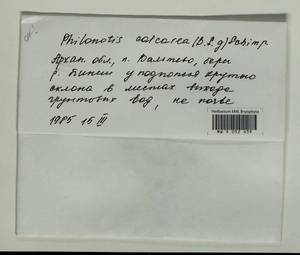 Philonotis calcarea (B.S.g) Schimp
Архан. обл., п. Валтево, берег
р. Пинеги у подножья крутого
склона в местах выхода
грунтовых вод, на почве
1985 15 III
Herbarium MW, Bryophyta